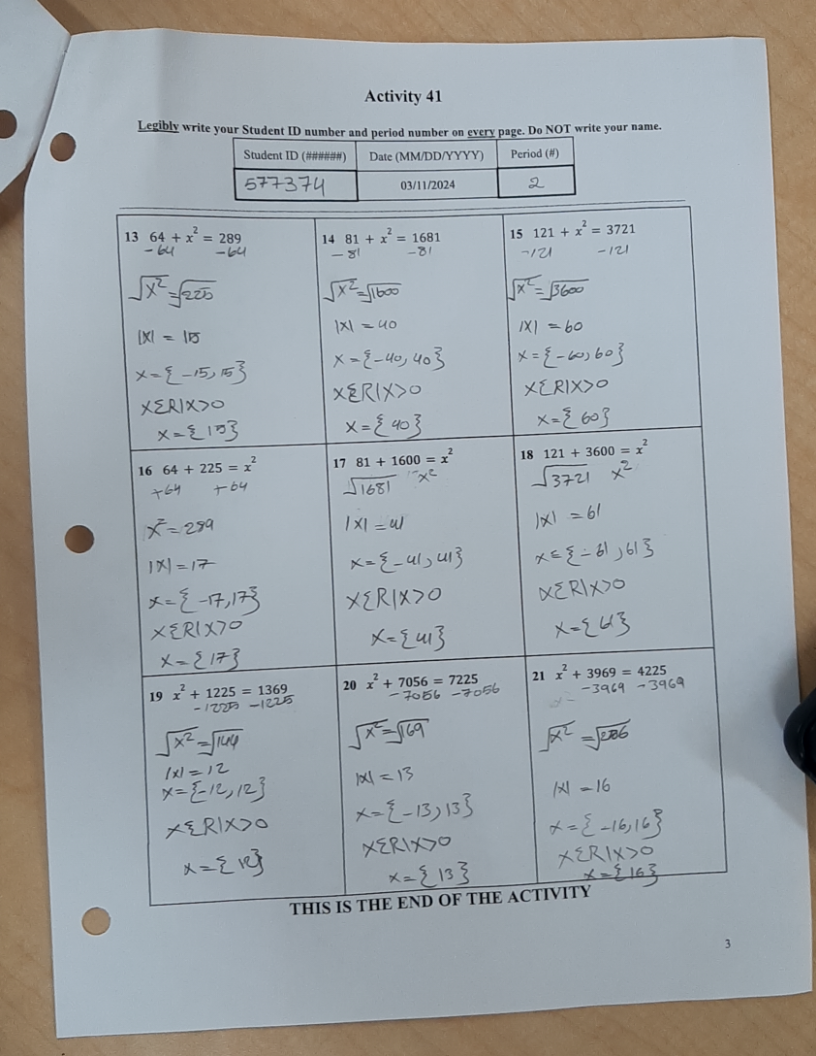 Activity 41
Legibly write your Student ID number and period number on every page. Do NOT write your name.
Student ID (######) Date (MM/DD/YYYY) Period (#)
577374 03/11/2024 2
13 64 + x² = 289
-64 -64
√x² = √225
|x| = 15
x = {-15, 15}
xΣR|x>0
x = {15}
14 81 + x² = 1681
-81 -81
√x² = √1600
|x| = 40
x = {-40, 40}
xΣR|x>0
x = {40}
15 121 + x² = 3721
-121 -121
√x² = √3600
|x| = 60
x = {-60, 60}
xΣR|x>0
x = {60}
16 64 + 225 = x²
+64 +64
x² = 289
|x| = 17
x = {-17, 17}
xΣR|x>0
x = {17}
17 81 + 1600 = x²
√1681 x²
|x| = 41
x = {-41, 41}
xΣR|x>0
x = {41}
18 121 + 3600 = x²
√3721 x²
|x| = 61
x = {-61, 61}
xΣR|x>0
x = {61}
19 x² + 1225 = 1369
-1225 -1225
√x² = √144
|x| = 12
x = {-12, 12}
xΣR|x>0
x = {12}
20 x² + 7056 = 7225
-7056 -7056
√x² = √169
|x| = 13
x = {-13, 13}
xΣR|x>0
x = {13}
21 x² + 3969 = 4225
-3969 -3969
√x² = √256
|x| = 16
x = {-16, 16}
xΣR|x>0
x = {16}
THIS IS THE END OF THE ACTIVITY
3